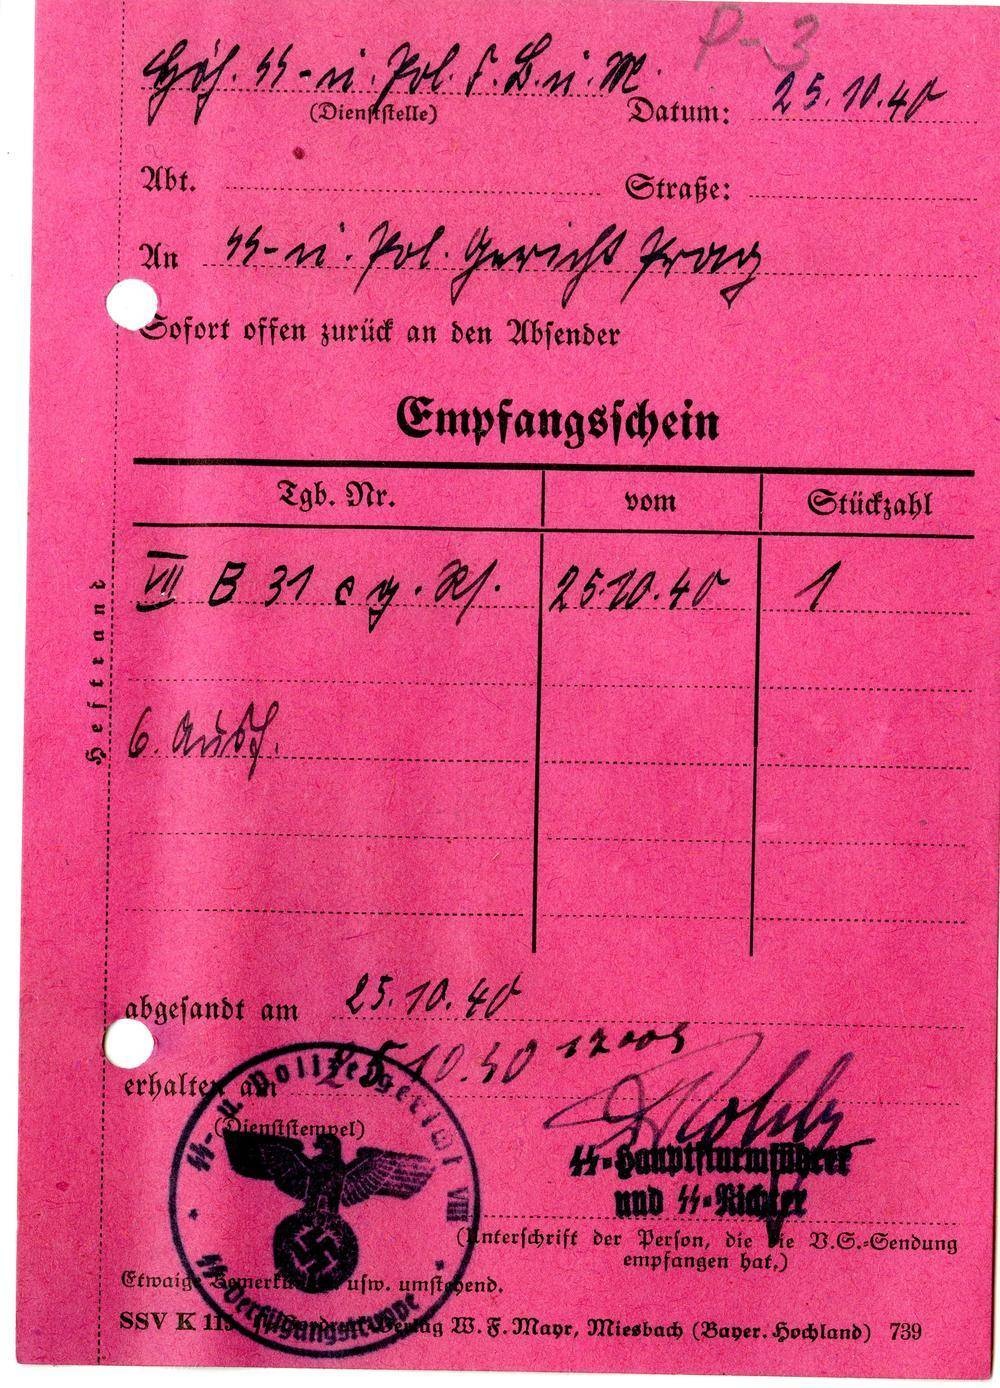 P-3
Höh. SS-u. Pol. F. B. u. M.
(Dienststelle)
Datum: 25.10.40
Abt. Straße:
An SS-u. Pol. Gericht Prag
Sofort offen zurück an den Absender
Empfangsschein
Tgb. Nr. vom Stückzahl
VII B 31 c g. Rs. 25.10.40 1
6. Ausf.
Heftrand
abgesandt am 25.10.40
erhalten am 25.10.40
(Dienststempel)
SS-u. Polizeigericht VIII
SS-Verfügungstruppe
SS-Hauptsturmführer
und SS-Richter
(Unterschrift der Person, die die V.S.-Sendung
empfangen hat.)
Etwaige Bemerkungen usw. umstehend.
SSV K 11 Verlag W. F. Mayr, Miesbach (Bayer. Hochland) 739